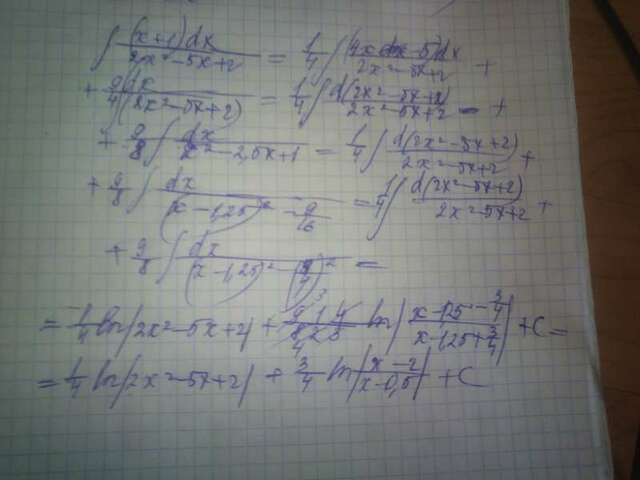 ∫ (x+1)dx / 2x²-5x+2 = 1/4 ∫ (4x-5)dx / 2x²-5x+2 +
+ 9/4 ∫ dx / (2x²-5x+2) = 1/4 ∫ d(2x²-5x+2) / 2x²-5x+2 +
+ 9/8 ∫ dx / x²-2,5x+1 = 1/4 ∫ d(2x²-5x+2) / 2x²-5x+2 +
+ 9/8 ∫ dx / (x-1,25)² - 9/16 = 1/4 ∫ d(2x²-5x+2) / 2x²-5x+2 +
+ 9/8 ∫ dx / (x-1,25)² - (3/4)² =
= 1/4 ln|2x²-5x+2| + 9·1·4 / 8·2·3 ln| x-1,25-3/4 / x-1,25+3/4 | + C =
= 1/4 ln|2x²-5x+2| + 3/4 ln| x-2 / x-0,5 | + C